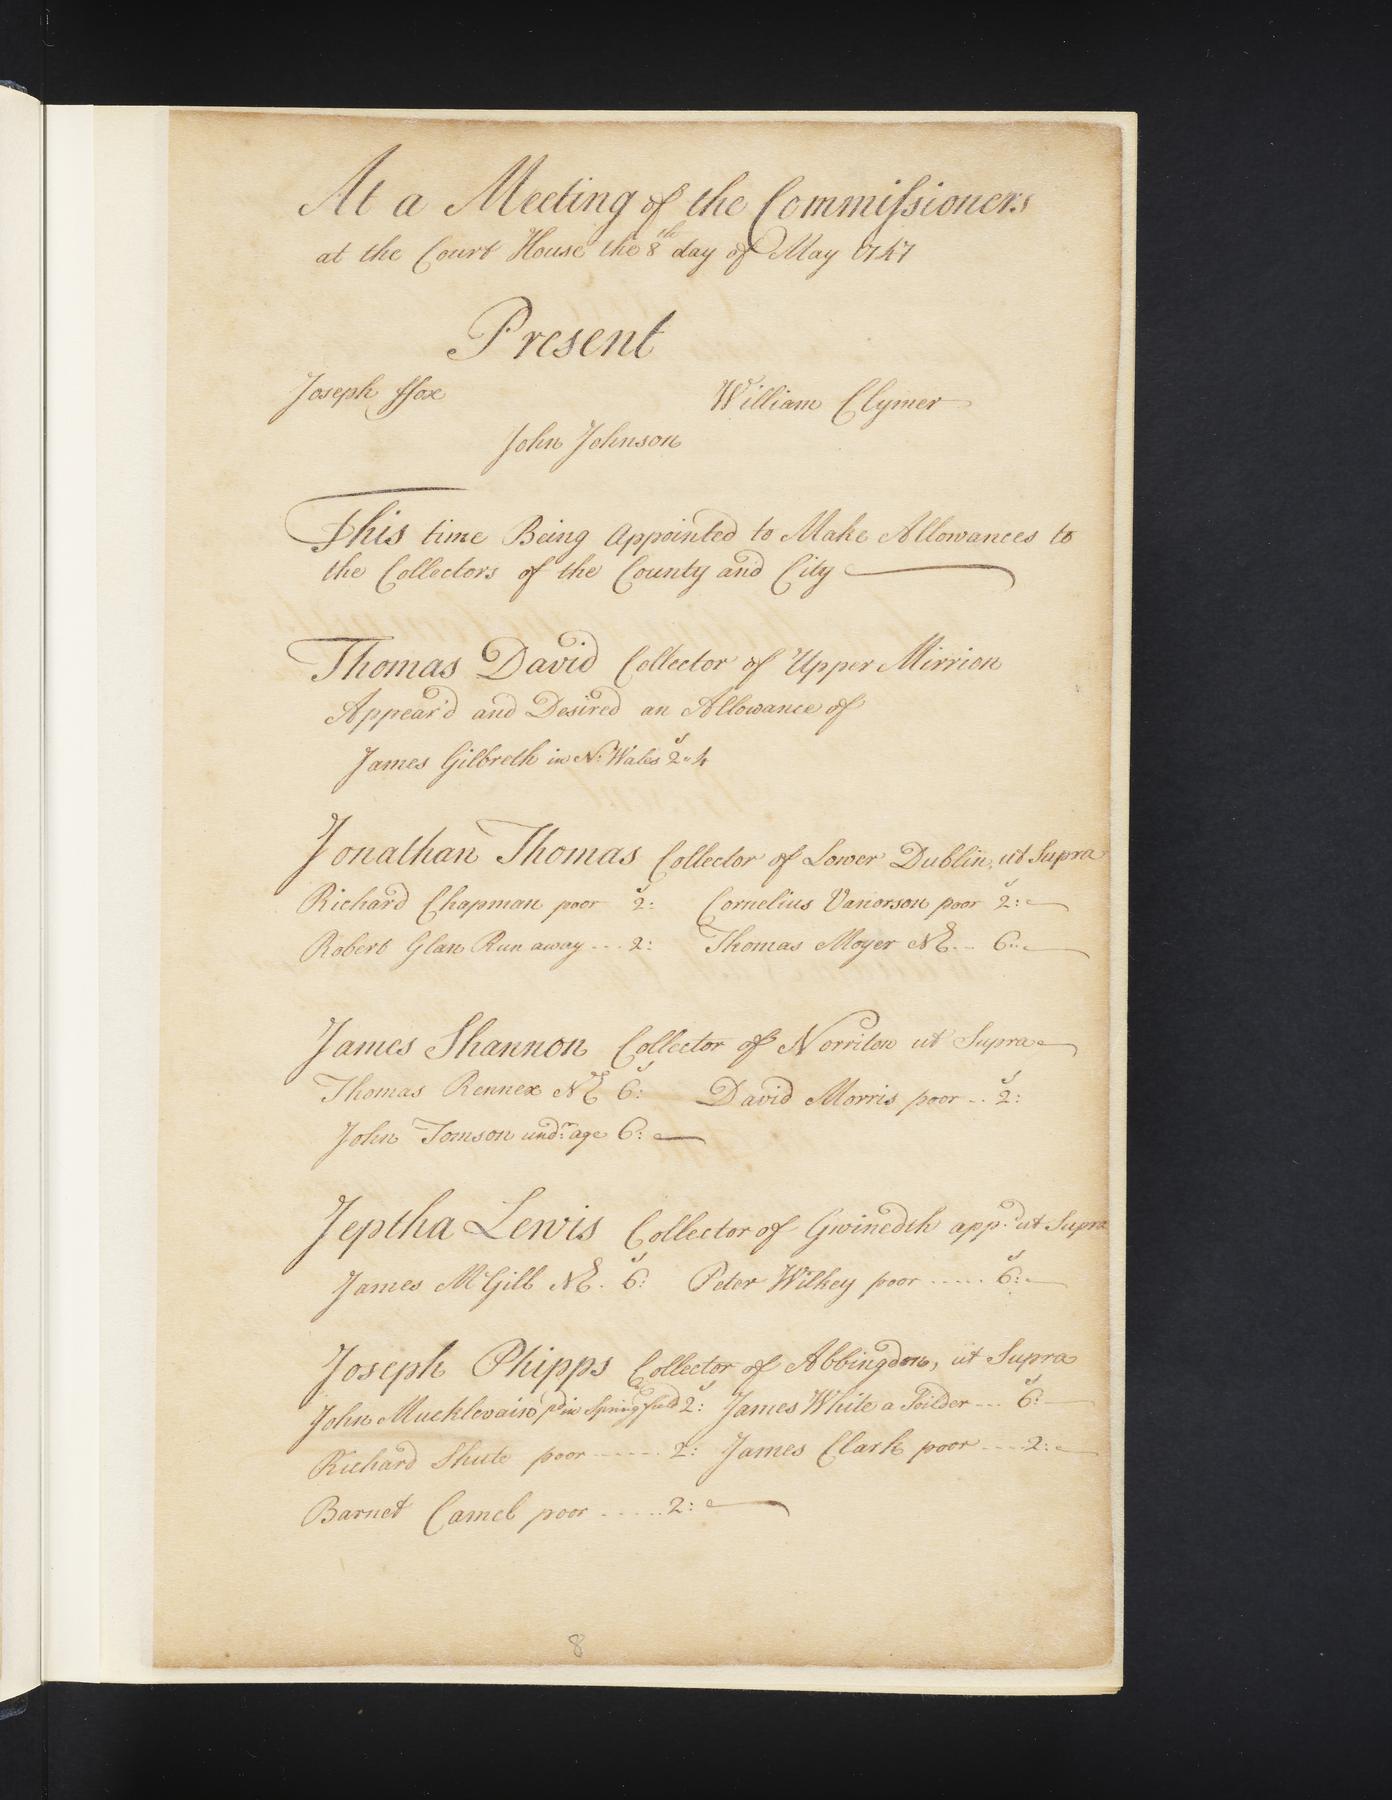 At a Meeting of the Commissioners
at the Court House the 8th day of May 1747
Present
Joseph ffox William Clymer
John Johnson
This time Being Appointed to Make Allowances to
the Collectors of the County and City
Thomas David Collector of Upper Mirrion
Appear'd and Desired an Allowance of
James Gilbreth in N. Wales 2s..4
Jonathan Thomas Collector of Lower Dublin, ut Supra
Richard Chapman poor 2s: Cornelius Vanorson poor 2s:
Robert Glan Run away - - - 2: Thomas Moyer NE - - 6:
James Shannon Collector of Norriton ut Supra
Thomas Rennex NE 6s: David Morris poor - - 2s:
John Tomson undr. age 6:
Jeptha Lewis Collector of Gwinedth app.d ut Supra
James McGill NE - 6s: Peter Wilkey poor - - - - - 6s:
Joseph Phipps Collector of Abbingdon, ut Supra
John Mucklevain pd in Springfield 2s: James White a - - - 6s:
Richard Shute poor - - - - - 2: James Clark poor - - - 2:
Barnet Camel poor - - - - - 2:
8